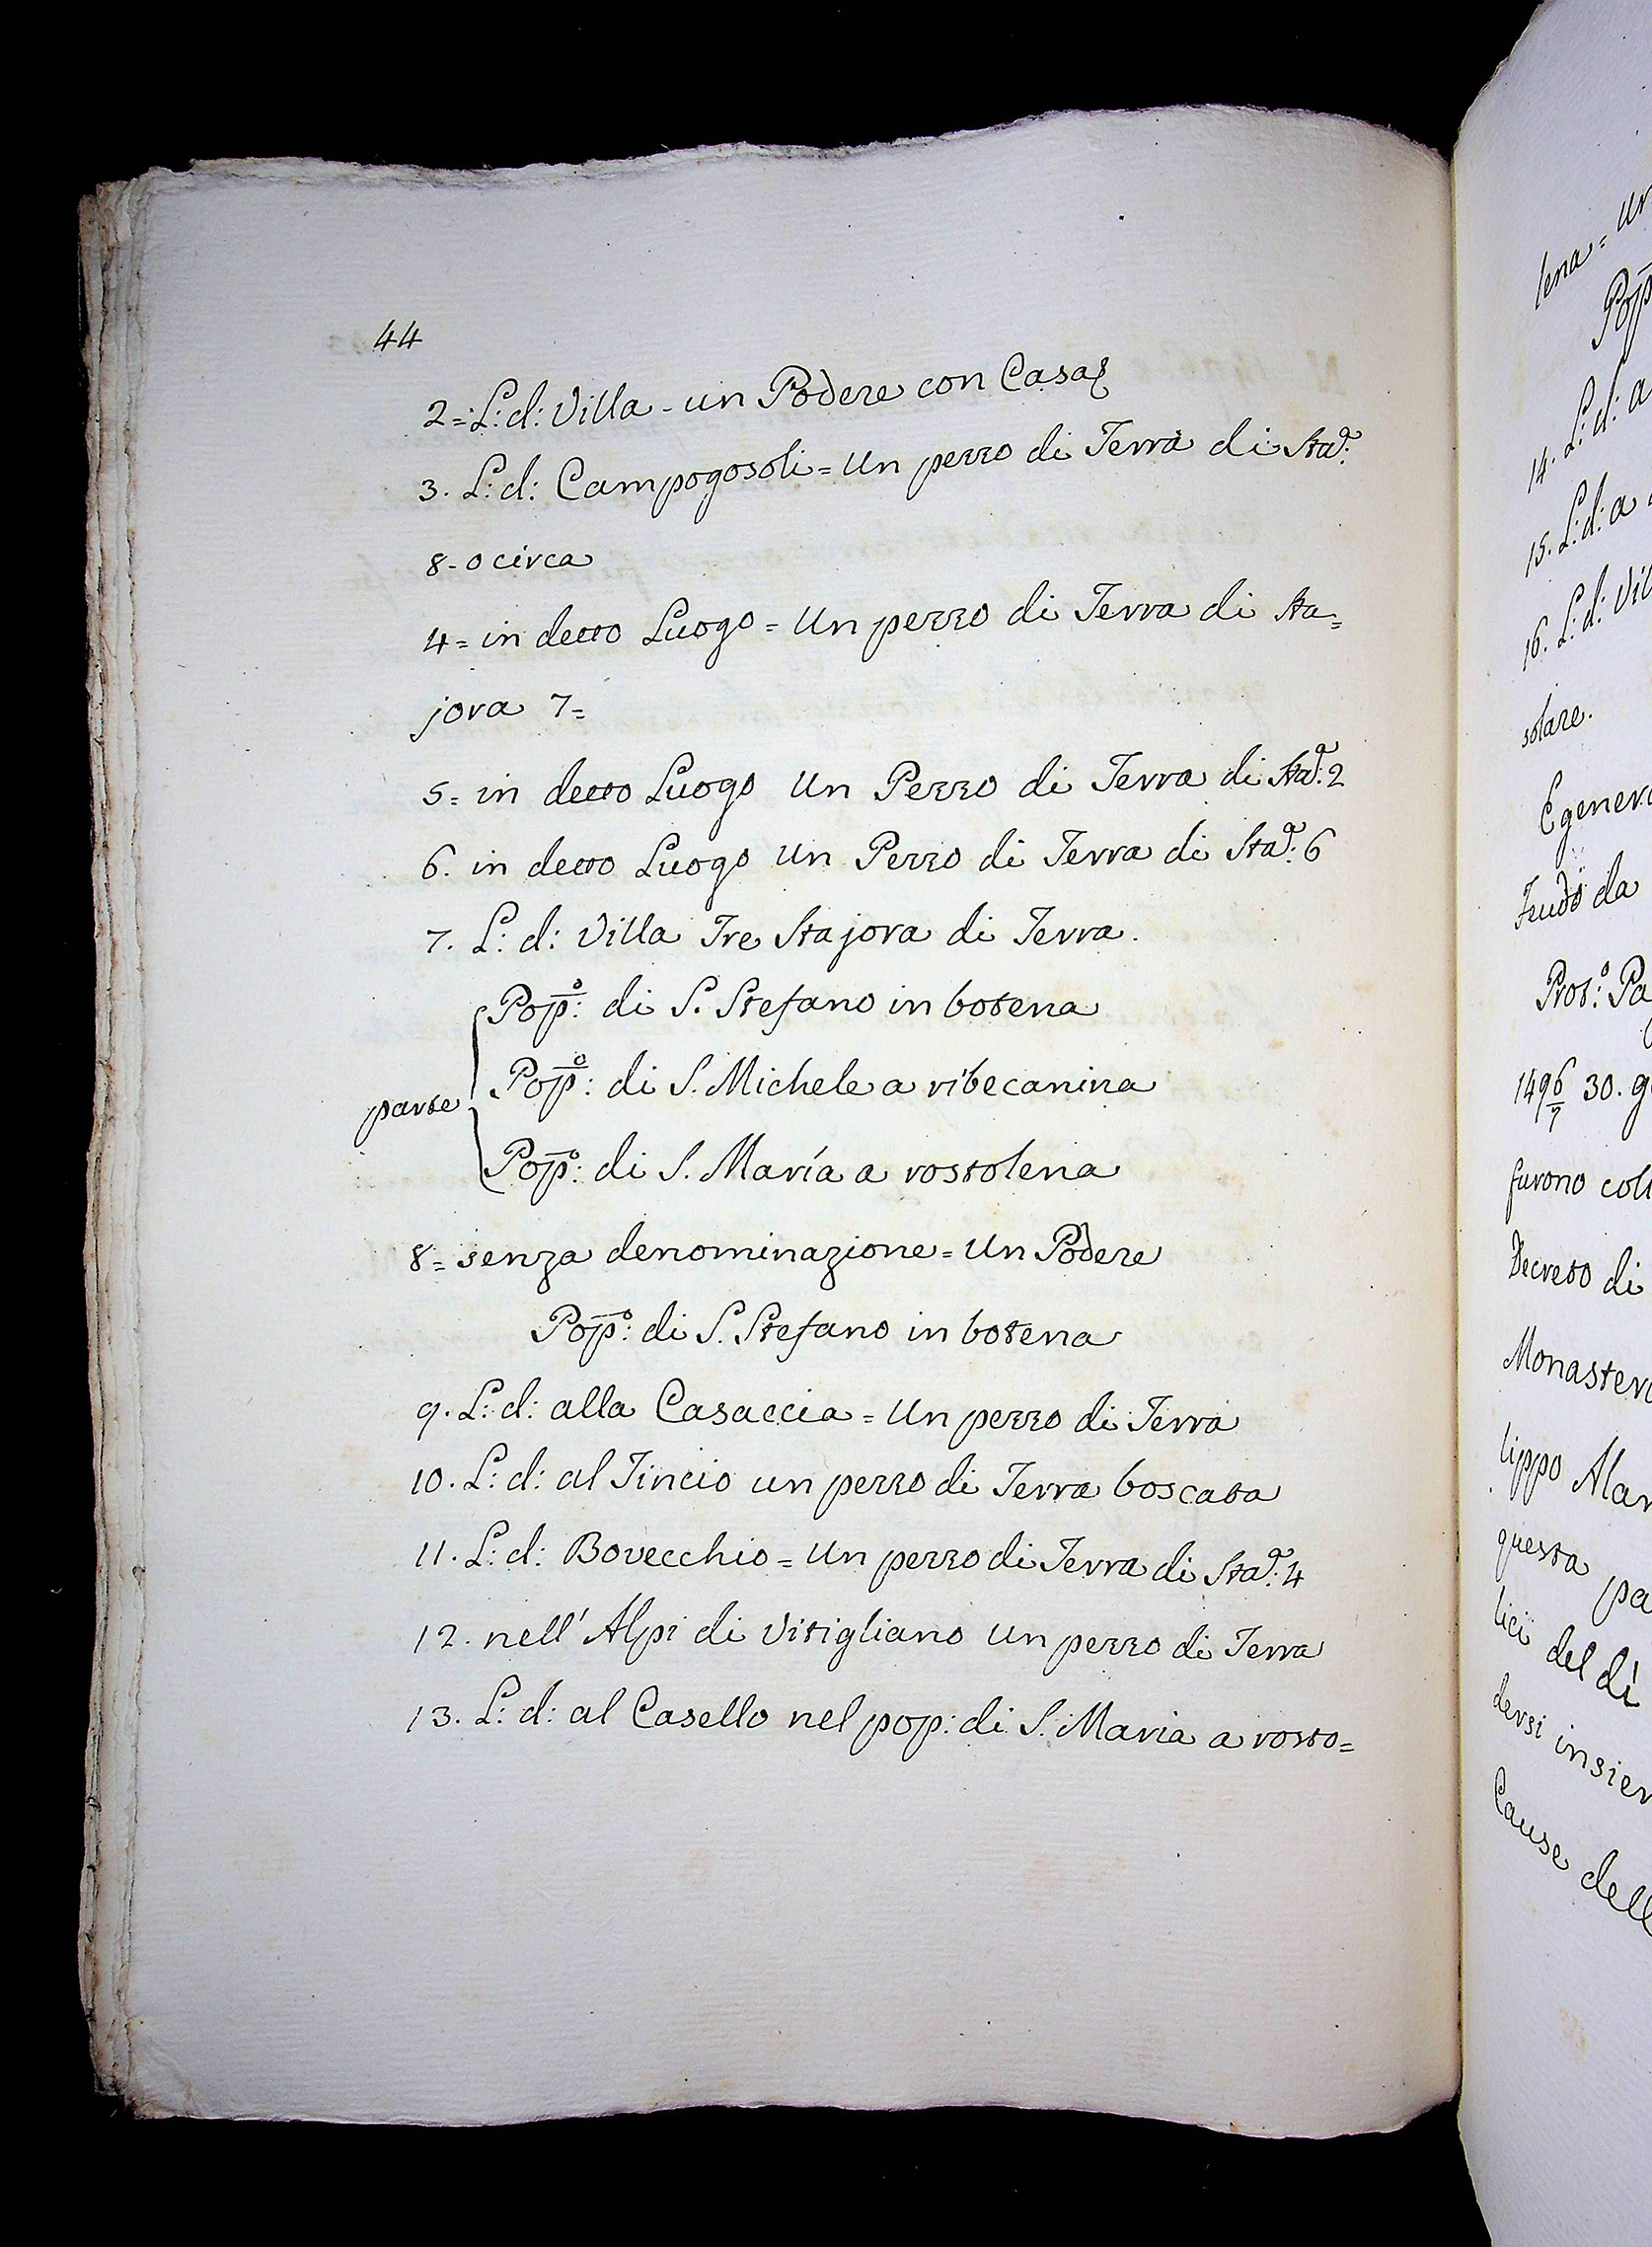 44
2=L: d: Villa - un Podere con Casa
3. L: d: Campogosoli = Un pezzo di Terra di Sta.ª:
8- o circa
4= in detto Luogo = Un pezzo di Terra di sta=
jora 7=
5= in detto Luogo Un Pezzo di Terra di Sta.ª: 2
6. in detto Luogo Un Pezzo di Terra di Sta.ª: 6
7. L: d: Villa Tre Stajora di Terra.
Pop.º: di S. Stefano in botena
parte Pop.º: di S. Michele a ribecanina
Pop.º: di S. María a rostolena
8= senza denominazione = Un Podere
Pop.º: di S. Stefano in botena
9. L: d: alla Casaccia = Un pezzo di Terra
10. L: d: al Tincio un pezzo di Terra boscata
11. L: d: Bovecchio = Un pezzo di Terra di Sta.ª: 4
12. nell' Alpi di Vitigliano Un pezzo di Terra
13. L: d: al Casello nel pop: di S. Maria a rosto=
lena = Un
Pop
14. L: d: a
15. L: d: a
16. L: d: Vil
solare.
E genera
Feudo da
Prot.º: Pa
1496/7 30. g
furono coll
Decreto di
Monastero
lippo Alam
questa pa
lici del dì
dersi insiem
Cause dell